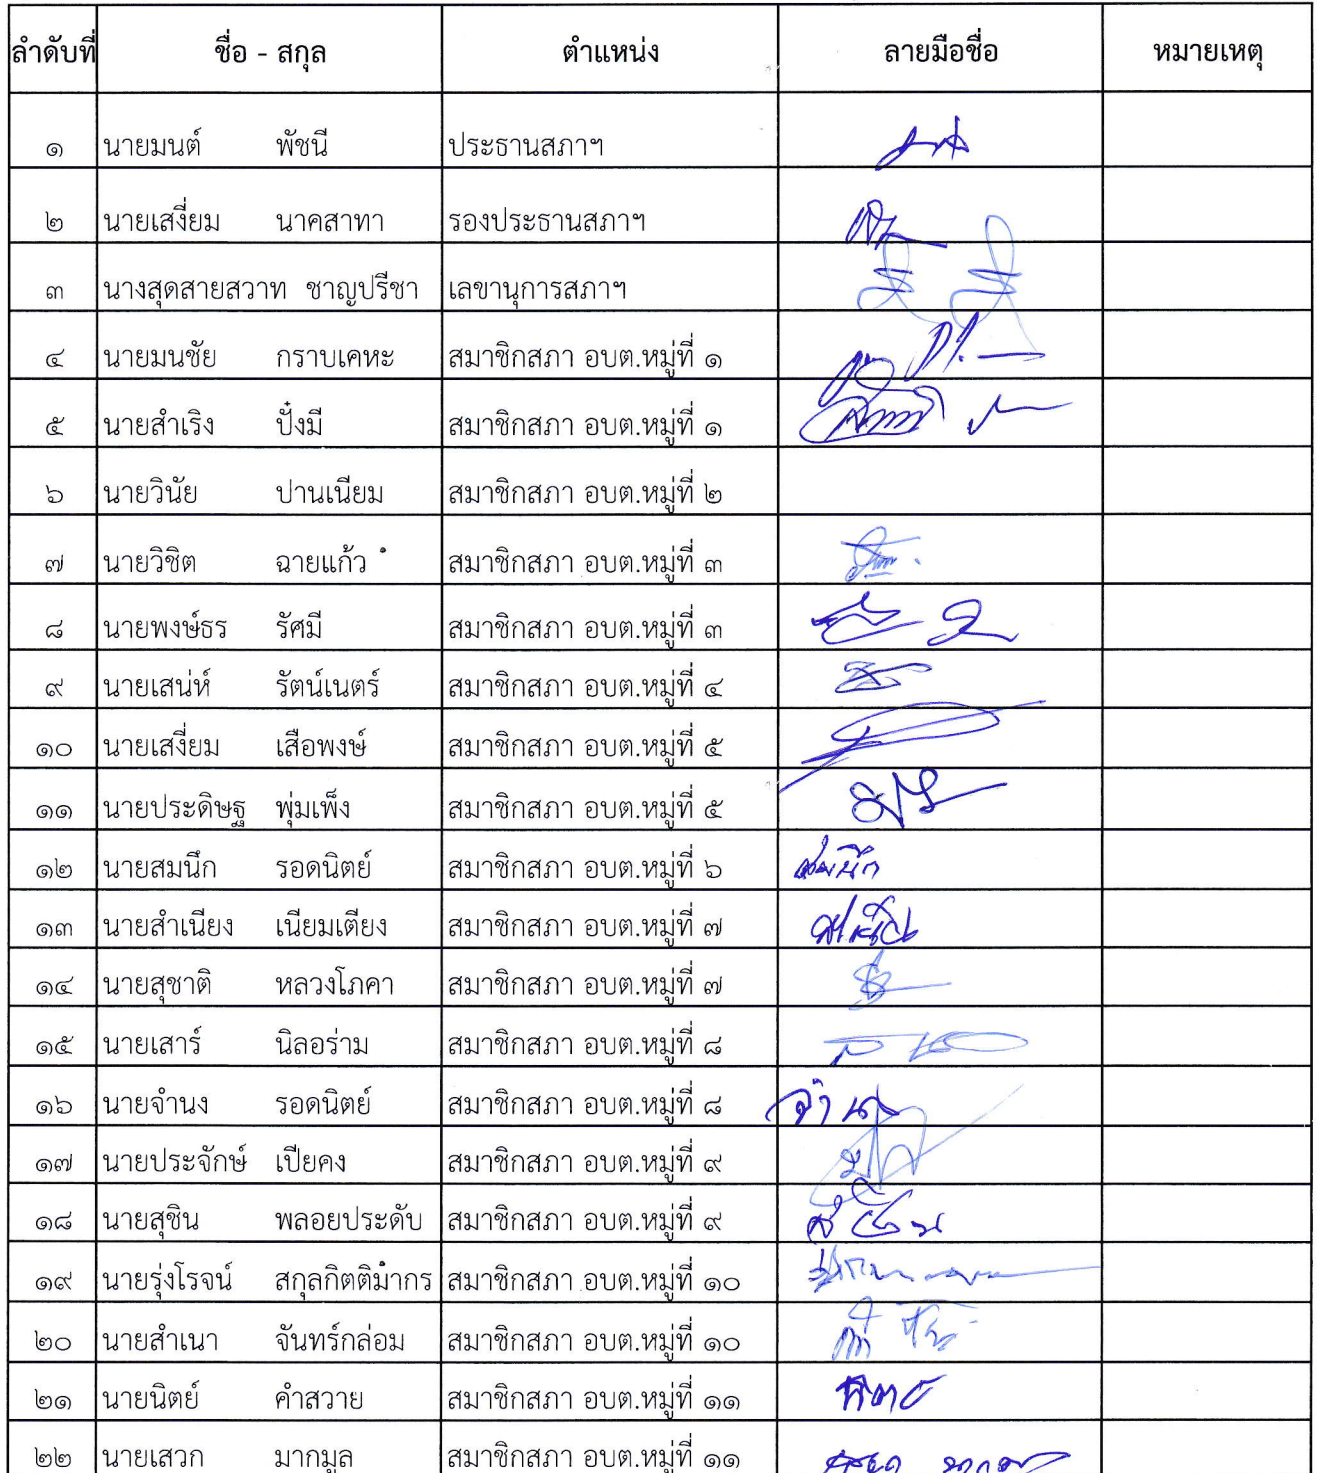 ลำดับที่ ชื่อ - สกุล ตำแหน่ง ลายมือชื่อ หมายเหตุ
๑ นายมนต์ พัชนี ประธานสภาฯ
๒ นายเสงี่ยม นาคสาทา รองประธานสภาฯ
๓ นางสุดสายสวาท ชาญปรีชา เลขานุการสภาฯ
๔ นายมนชัย กราบเคหะ สมาชิกสภา อบต.หมู่ที่ ๑
๕ นายสำเริง ปั๋งมี สมาชิกสภา อบต.หมู่ที่ ๑
๖ นายวินัย ปานเนียม สมาชิกสภา อบต.หมู่ที่ ๒
๗ นายวิชิต ฉายแก้ว สมาชิกสภา อบต.หมู่ที่ ๓
๘ นายพงษ์ธร รัศมี สมาชิกสภา อบต.หมู่ที่ ๓
๙ นายเสน่ห์ รัตน์เนตร์ สมาชิกสภา อบต.หมู่ที่ ๔
๑๐ นายเสงี่ยม เสือพงษ์ สมาชิกสภา อบต.หมู่ที่ ๕
๑๑ นายประดิษฐ พุ่มเพ็ง สมาชิกสภา อบต.หมู่ที่ ๕
๑๒ นายสมนึก รอดนิตย์ สมาชิกสภา อบต.หมู่ที่ ๖ สมนึก
๑๓ นายสำเนียง เนียมเตียง สมาชิกสภา อบต.หมู่ที่ ๗
๑๔ นายสุชาติ หลวงโภคา สมาชิกสภา อบต.หมู่ที่ ๗
๑๕ นายเสาร์ นิลอร่าม สมาชิกสภา อบต.หมู่ที่ ๘
๑๖ นายจำนง รอดนิตย์ สมาชิกสภา อบต.หมู่ที่ ๘
๑๗ นายประจักษ์ เปียคง สมาชิกสภา อบต.หมู่ที่ ๙
๑๘ นายสุชิน พลอยประดับ สมาชิกสภา อบต.หมู่ที่ ๙
๑๙ นายรุ่งโรจน์ สกุลกิตติมากร สมาชิกสภา อบต.หมู่ที่ ๑๐
๒๐ นายสำเนา จันทร์กล่อม สมาชิกสภา อบต.หมู่ที่ ๑๐
๒๑ นายนิตย์ คำสวาย สมาชิกสภา อบต.หมู่ที่ ๑๑ นิตย์
๒๒ นายเสวก มากมูล สมาชิกสภา อบต.หมู่ที่ ๑๑